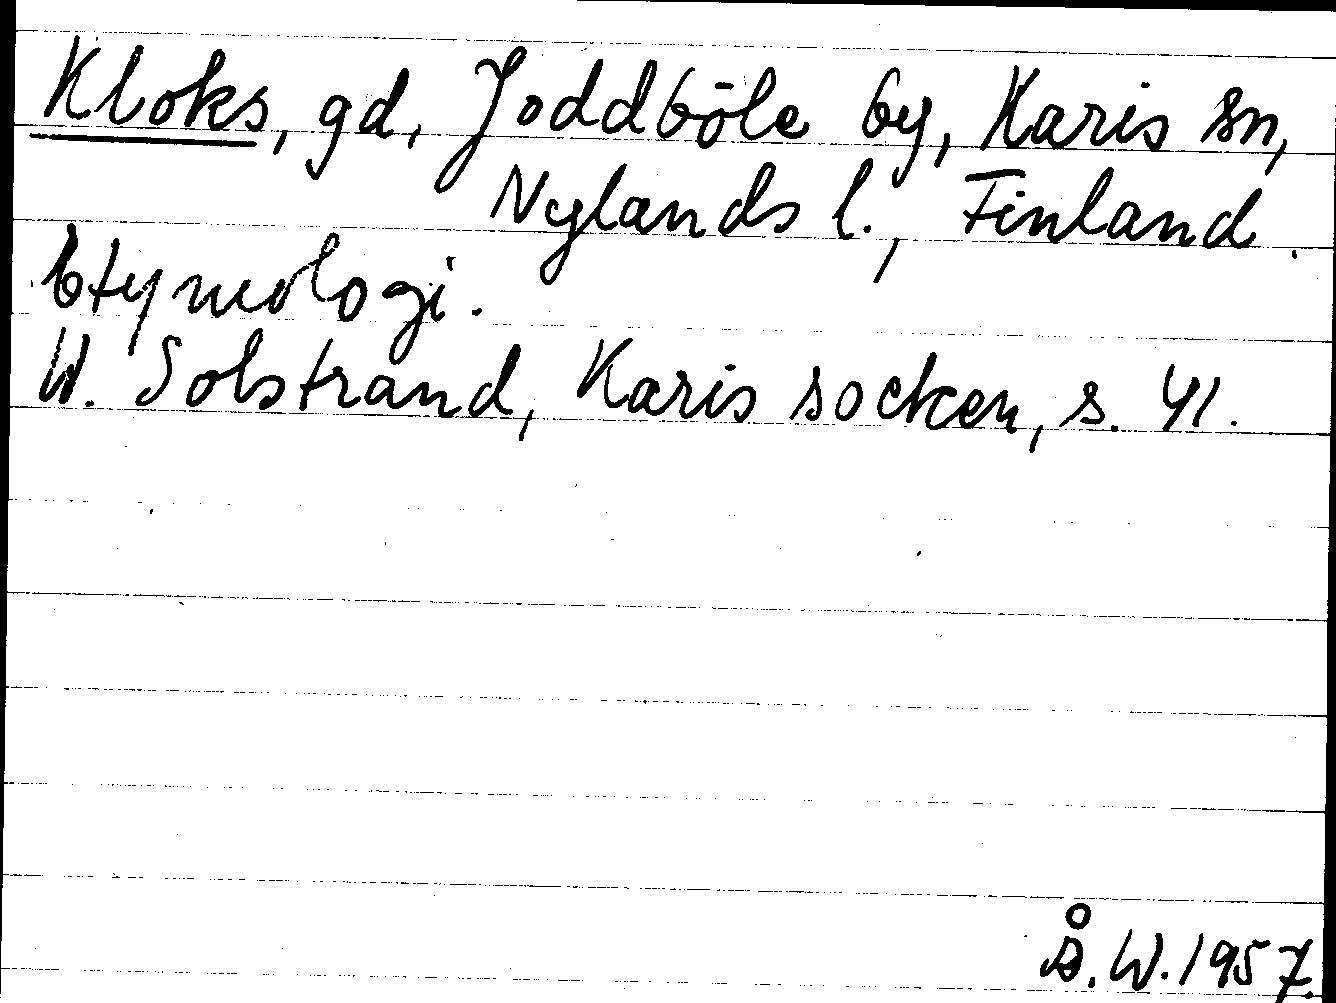 Kloks, gd, Joddböle by, Karis sn,
Nylands l., Finland.
Etymologi.
W. Solstrand, Karis socken, s. 41.
Å. W. 1957.